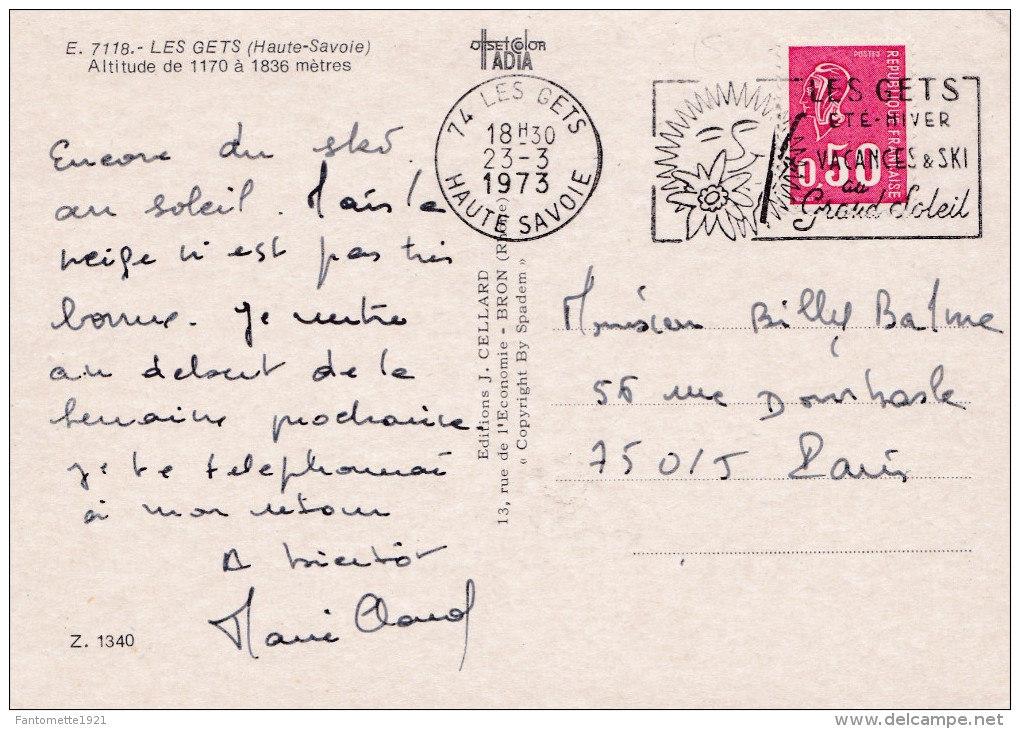 E. 7118.- LES GETS (Haute-Savoie)
Altitude de 1170 à 1836 mètres
OFFSET COLOR
IADIA
74 LES GETS
18H30
23-3
1973
HAUTE SAVOIE
LES GETS
ÉTÉ-HIVER
VACANCES & SKI
au
Grand Soleil
POSTES
REPUBLIQUE FRANÇAISE
0,50
Encore du ski
au soleil. Mais la
neige n'est pas très
bonne. Je rentre
au debut de la
semaine prochaine.
Je te telephonerai
à mon retour
A bientôt
Marie Claud
Z. 1340
Editions J. CELLARD
13, rue de l'Economie - BRON (Rhône)
« Copyright By Spadem »
Monsieur Billy Balme
56 rue Dombasle
75015 Paris
Fantomette1921
www.delcampe.net